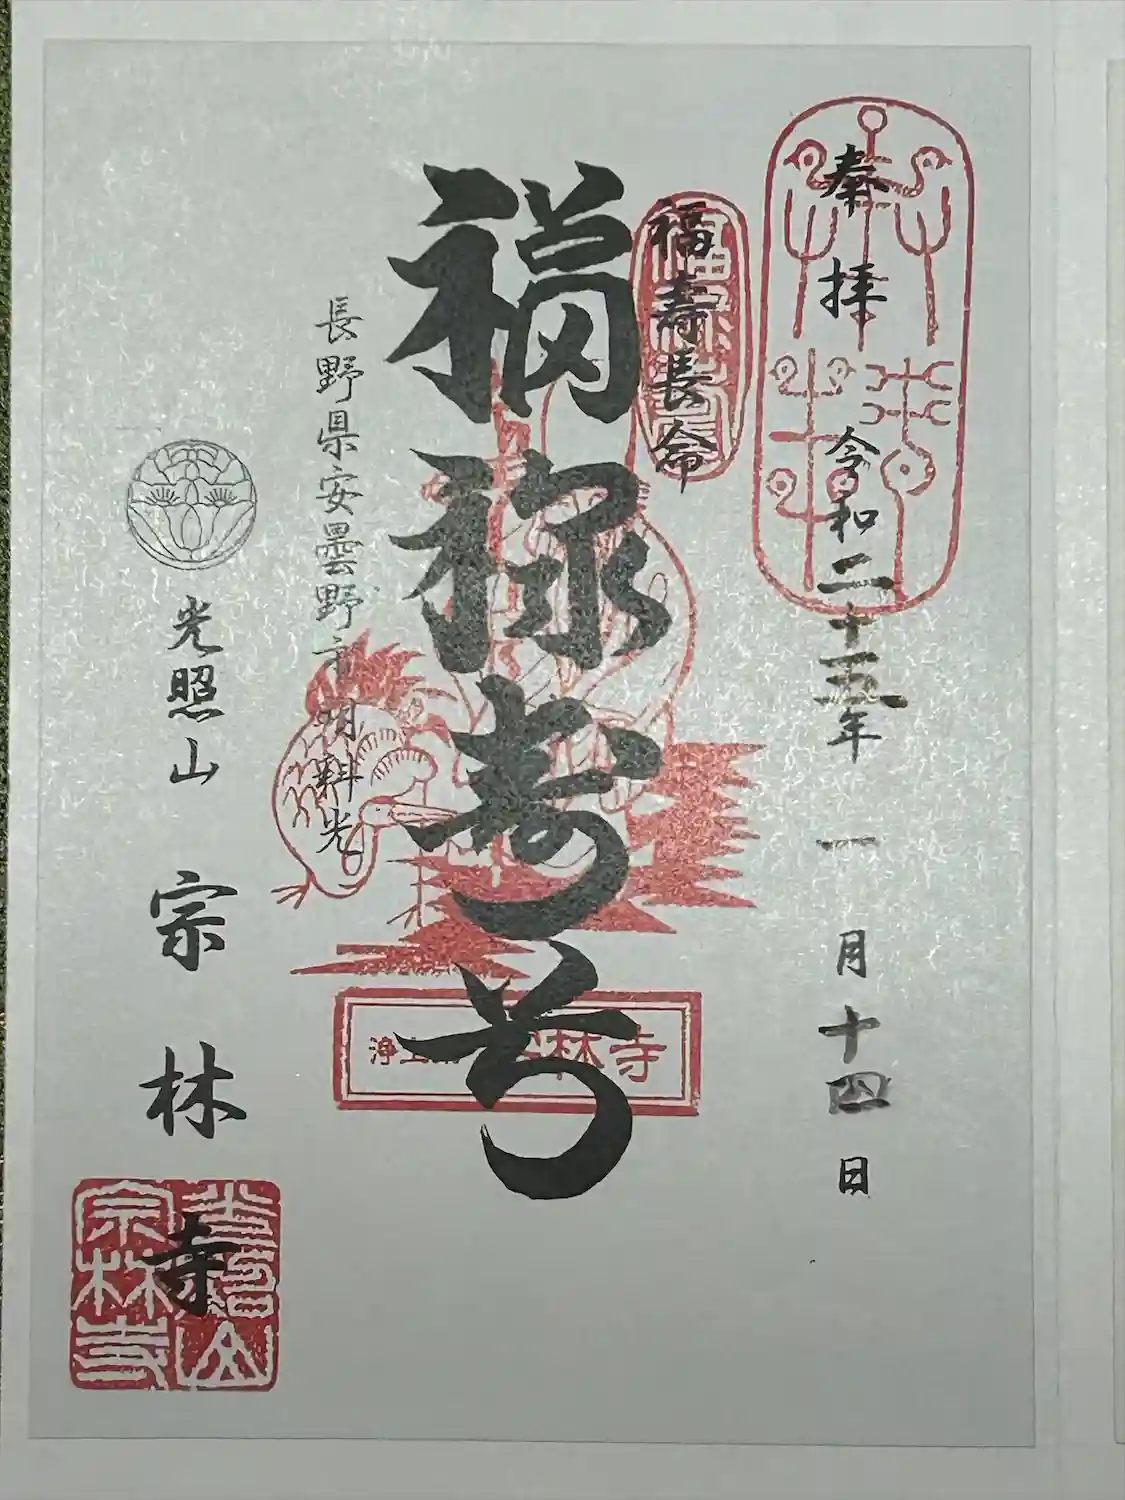 奉拝 令和二十五年 一月十四日
福寿長命
福禄寿
長野県安曇野市明科光
浄土宗 宗林寺
光照山 宗林寺
光照山
宗林寺